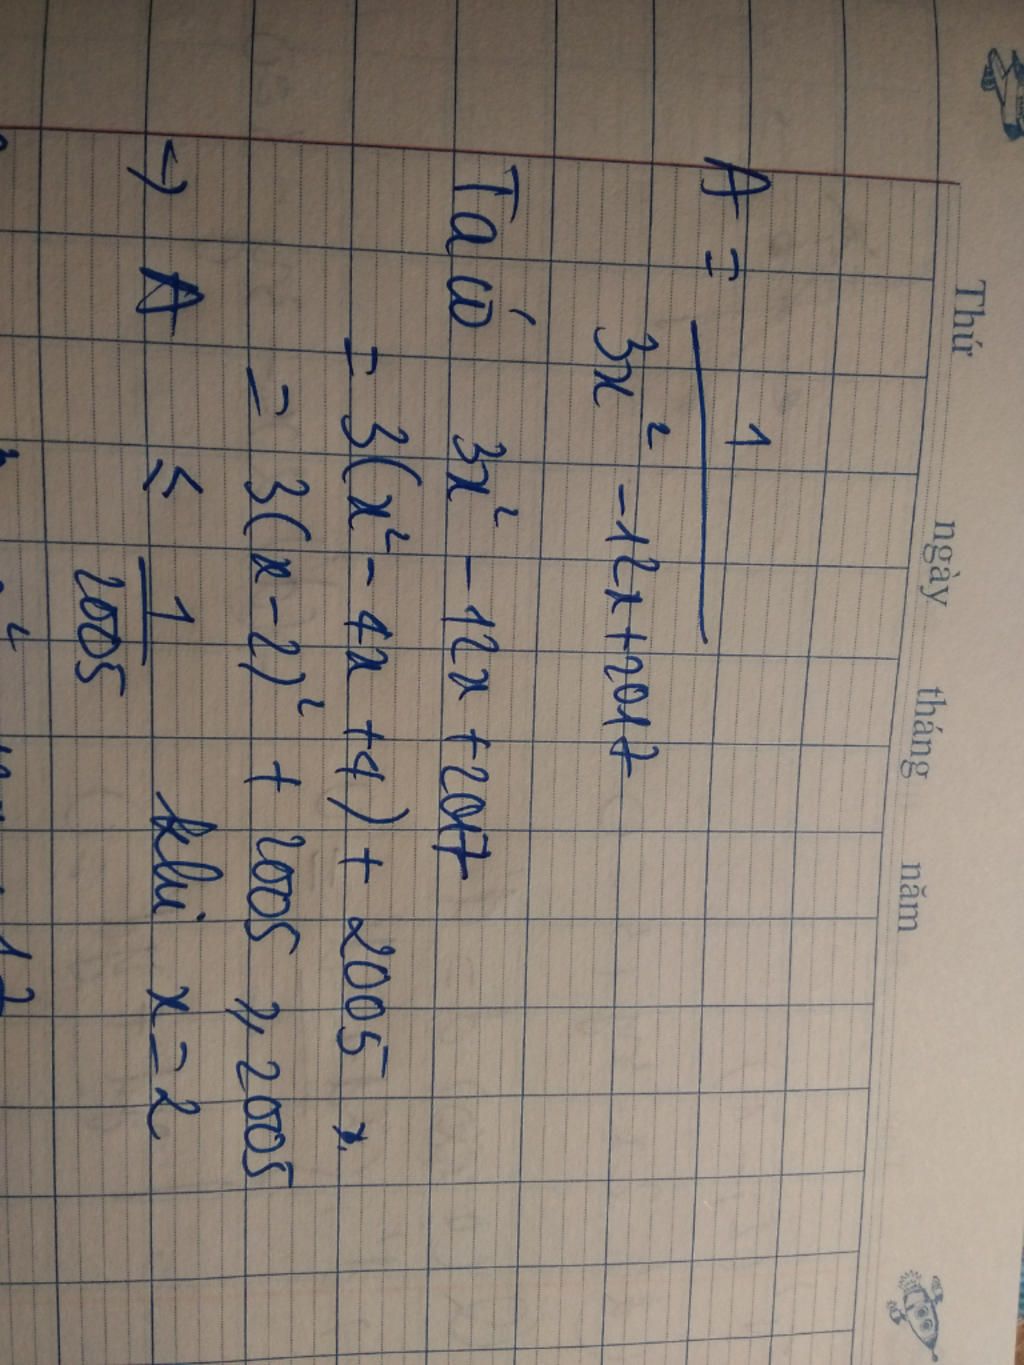 Thứ ngày tháng năm
A = 1
3x² - 12x + 2017
Ta có 3x² - 12x + 2017
= 3(x² - 4x + 4) + 2005
= 3(x - 2)² + 2005 ≥ 2005
→ A ≤ 1/2005 khi x = 2